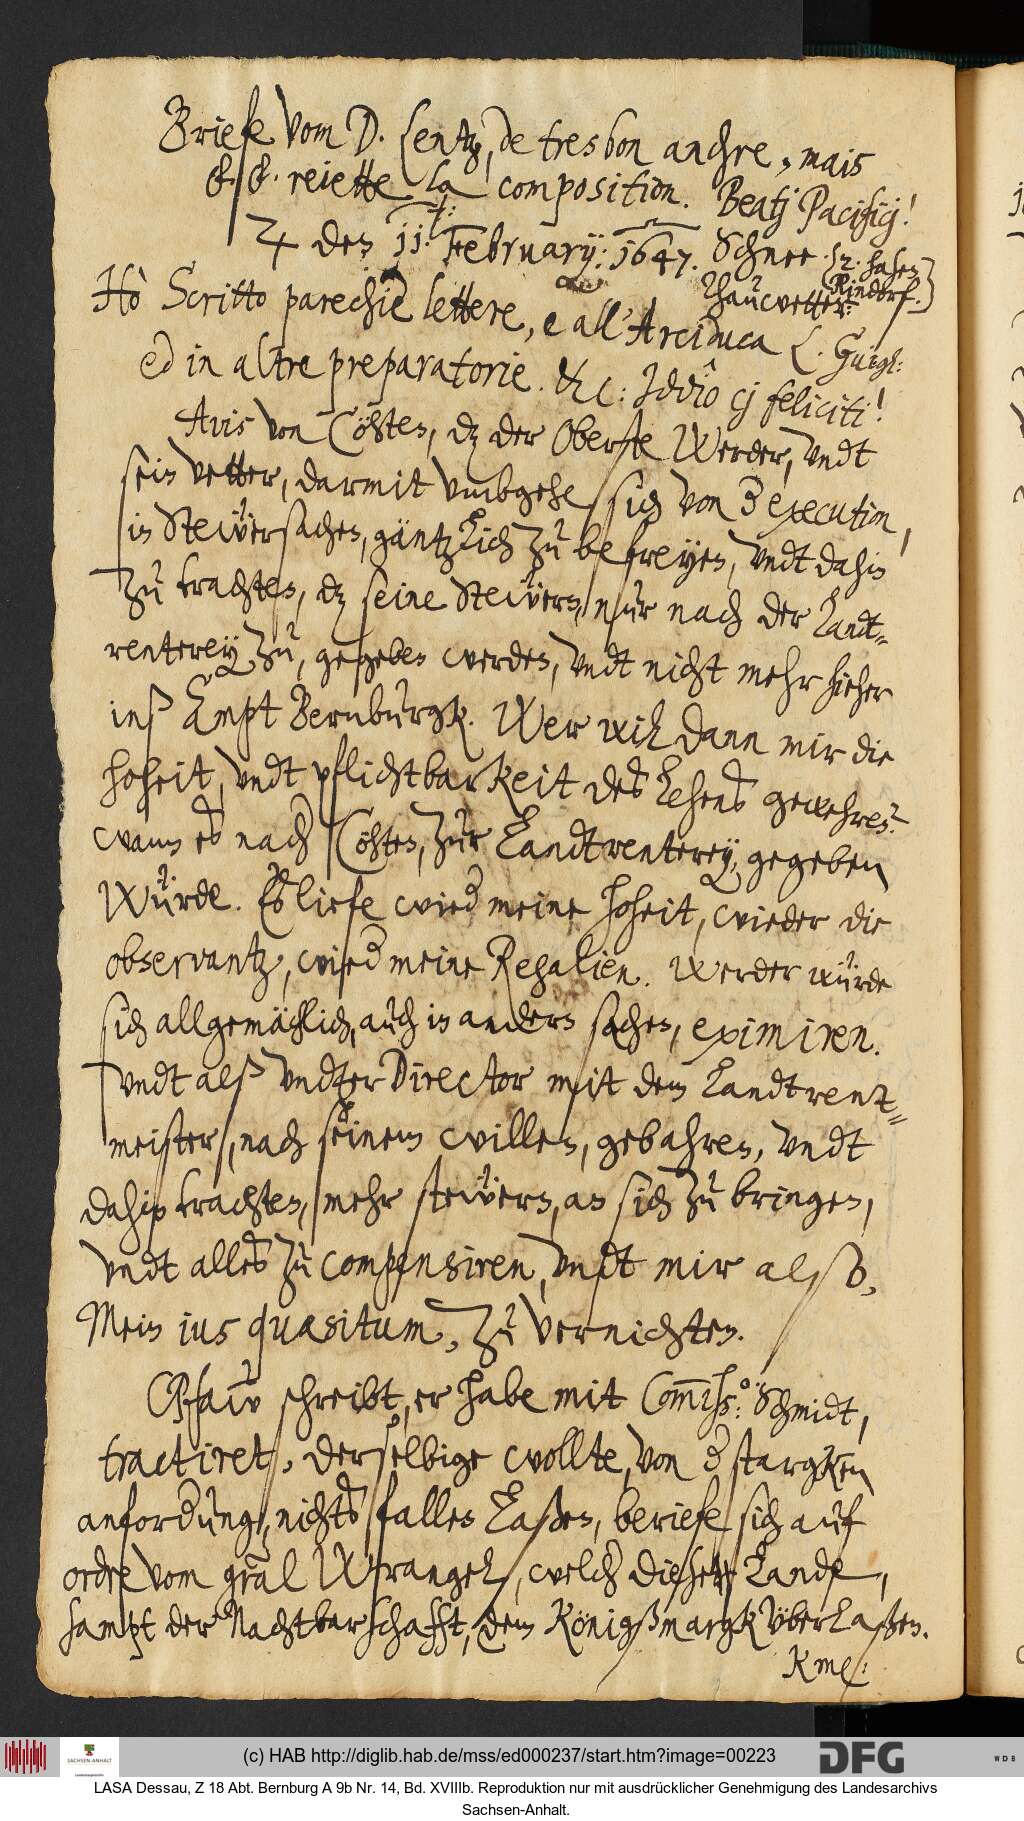 Briefe vom D. Lentz, de tres bon anchre, mais
reiette la composition. Beatj Pacificj!
♃ den 11. February: 1647. Schnee
{2. hasen
Rindorf.}
Thauwetter.
Hò Scritto parechie lettere, e all' Arciduca L. Guigl:
ed in altre preparatorie. &c: Iddîo cj feliciti!
Avis von Cöhten, dz der Oberste Werder, vndt
sein vetter, darmit vmbgehe sich von der execution,
in Steẅersachen, gäntzlich zu befreyen, vndt dahin
zu trachten, dz seine Steẅern, nur nach der Landt-
renterey zu, gegeben werden, vndt nicht mehr hieher
inß Ampt Bernburgk. Wer wil dann mir die
hoheit, vndt pflichtbarkeit des Lehens gewehren?
wann es nach Cöhten, zur Landtrenterey, gegeben
würde. Es liefe wieder meine hoheit, wieder die
observantz, wieder meine Regalien. Werder würde
sich allgemächlich, auch in andern sachen, eximiren.
vndt alß vndter Director mit dem Landtrent-
meister, nach seinem willen, gebahren, vndt
dahin trachten, mehr steẅern, an sich zu bringen,
vndt alles zu compensiren, vndt mir alßo,
Mein ius quæsitum, zu vernichten.
Pfaw schreibt, er habe mit Commiss:o Schmidt,
tractiret, derselbige wollte, von der starcken
anforderung, nichts fallen laßen, beriefe sich auf
ordre vom gral Wrangel, welcher diese Lande,
sampt der Nachtbarschafft, dem Königßmargk vberlaßen.
(c) HAB http://diglib.hab.de/mss/ed000237/start.htm?image=00223
SACHSEN-ANHALT
DFG
WDB
LASA Dessau, Z 18 Abt. Bernburg A 9b Nr. 14, Bd. XVIIIb. Reproduktion nur mit ausdrücklicher Genehmigung des Landesarchivs
Sachsen-Anhalt.